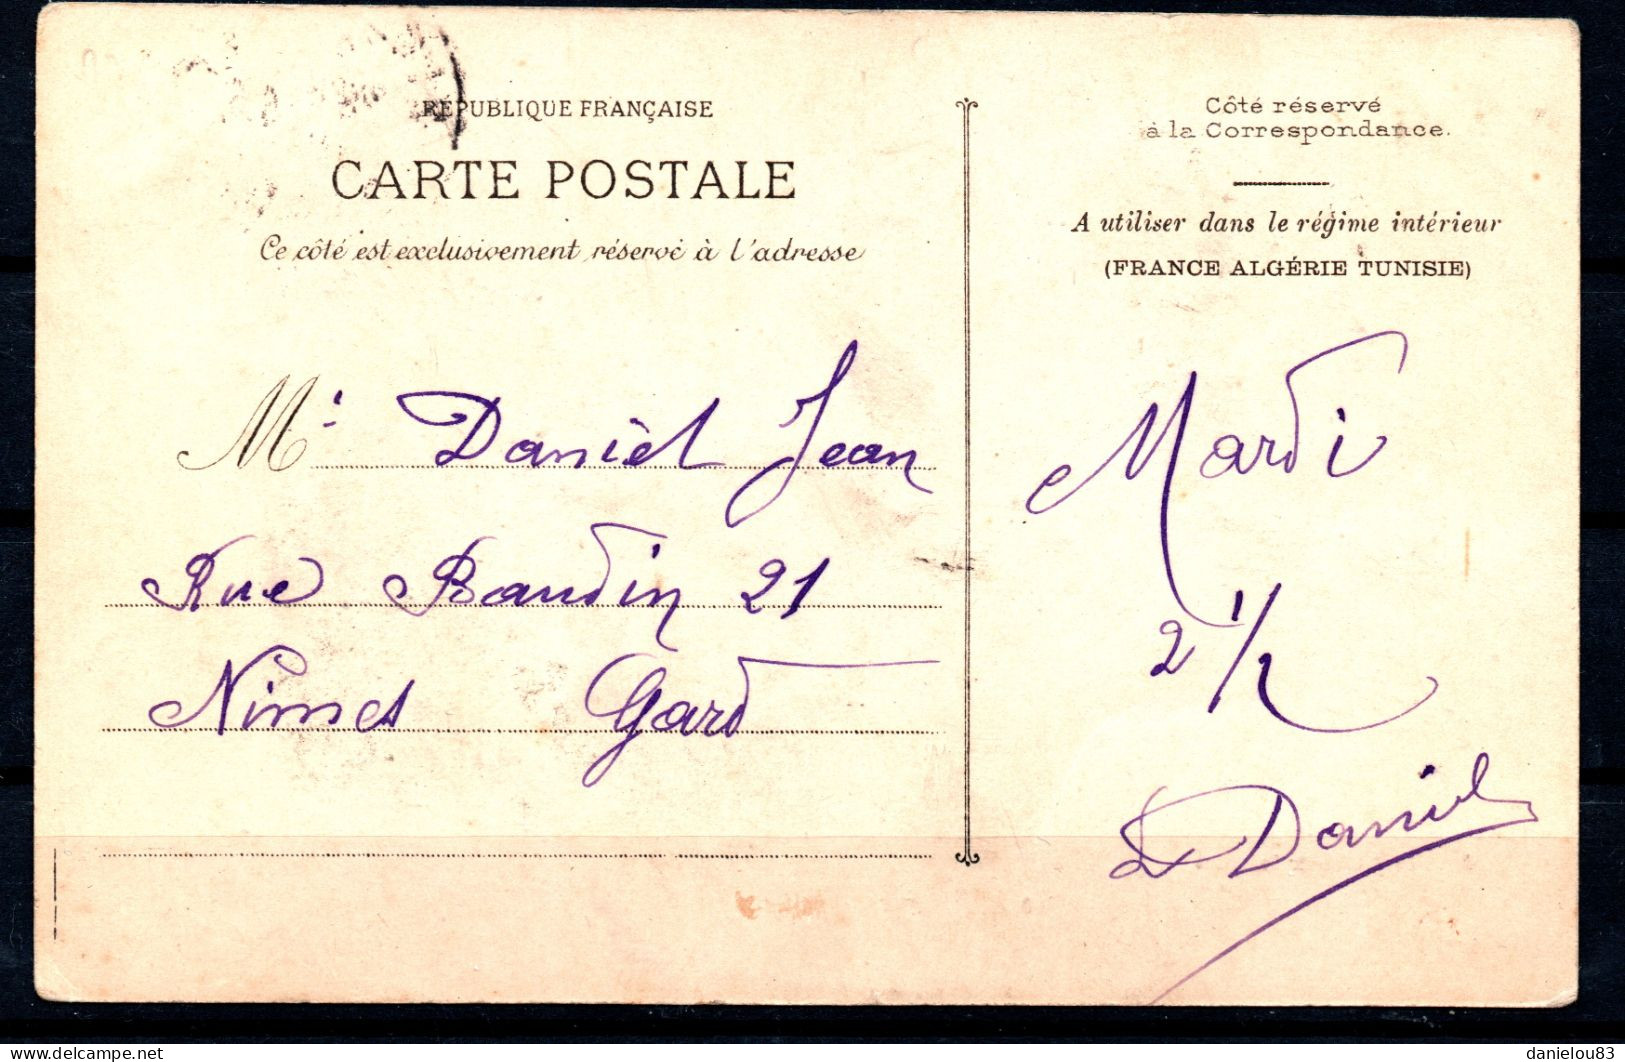 RÉPUBLIQUE FRANÇAISE
CARTE POSTALE
Ce côté est exclusivement réservé à l'adresse
Mr Daniel Jean
Rue Baudin 21
Nimes Gard
Côté réservé
à la Correspondance.
A utiliser dans le régime intérieur
(FRANCE ALGÉRIE TUNISIE)
Mardi
2 1/2
Daniel
delcampe.net
danielou83